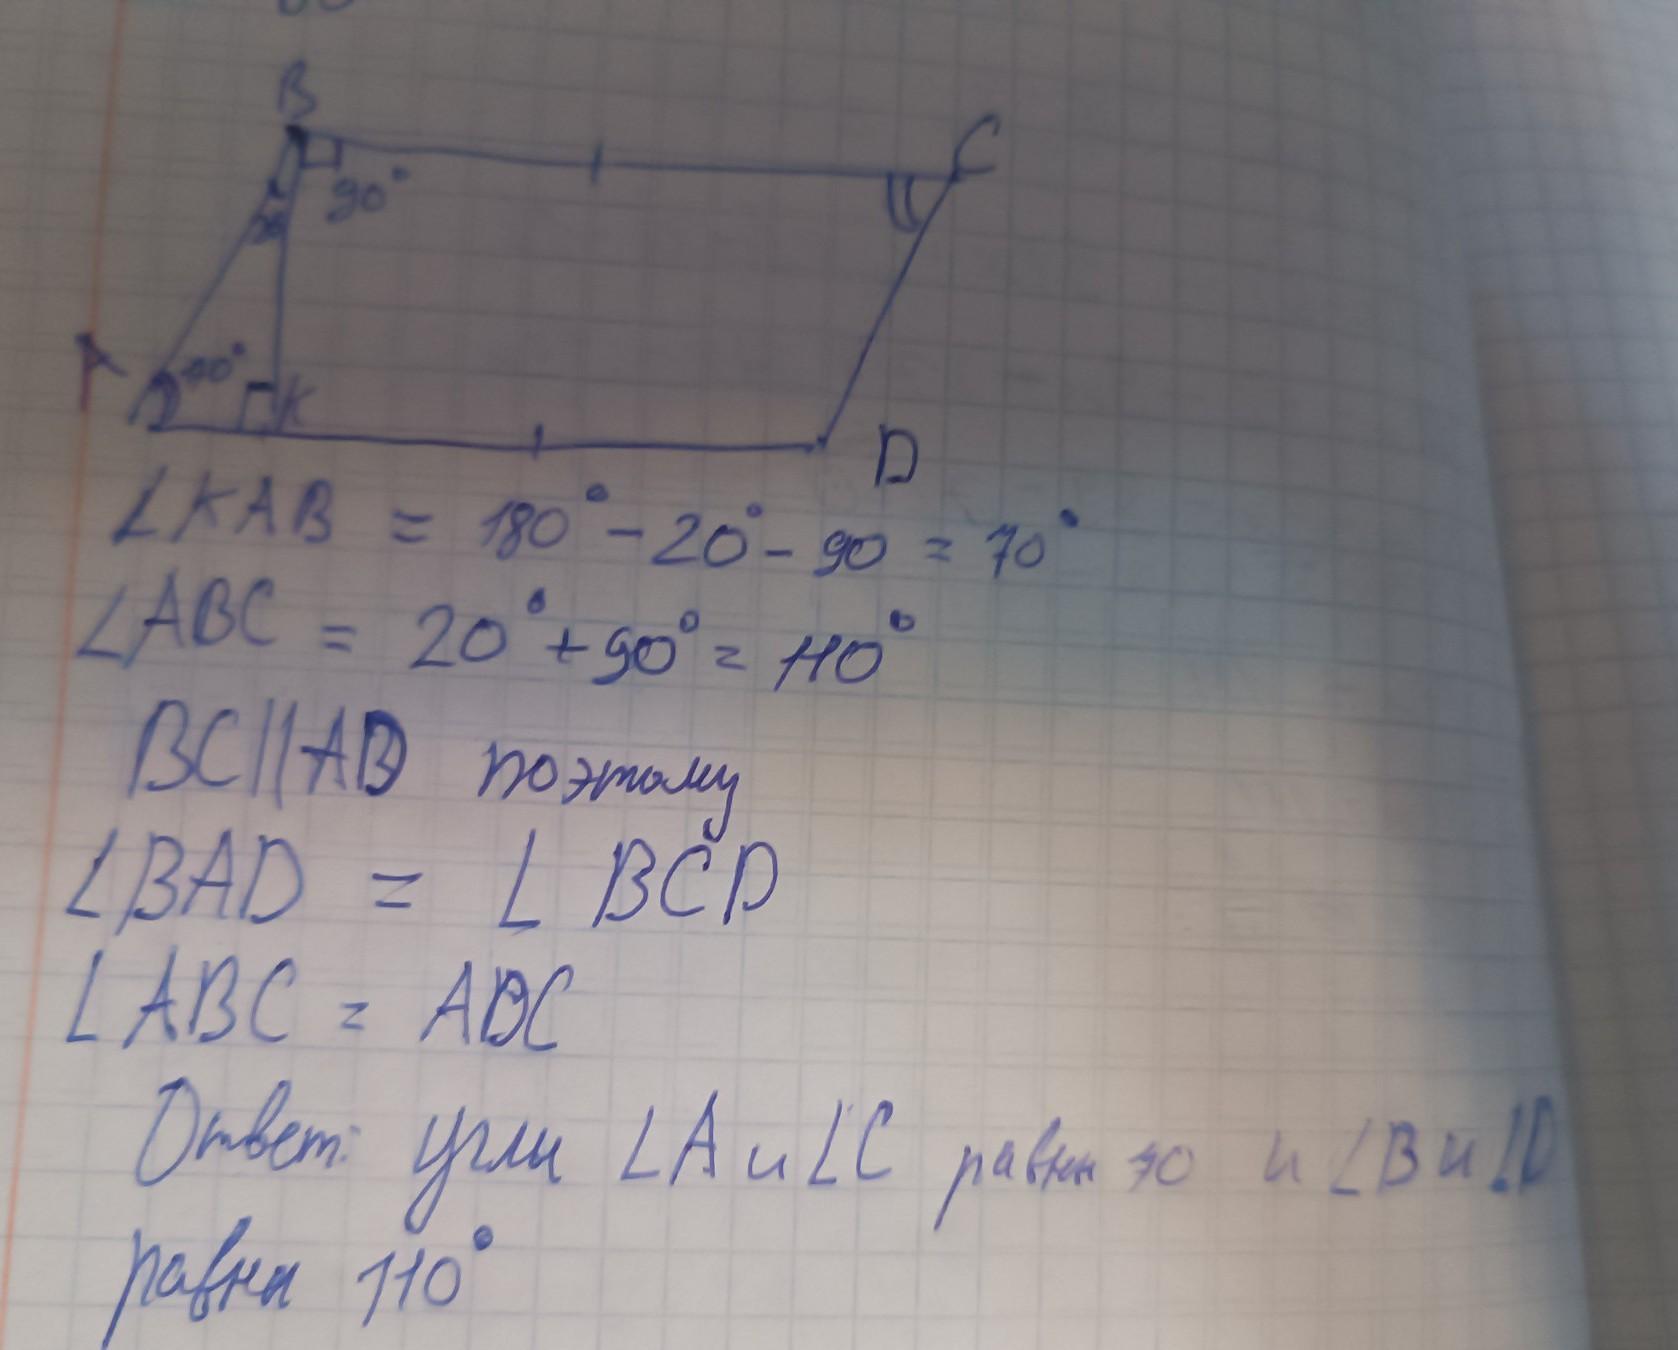 B
C
90°
20
A
70°
K
D
∠KAB = 180° - 20° - 90 = 70°
∠ABC = 20° + 90° = 110°
BC||AD поэтому
∠BAD = ∠ BCD
∠ABC = ADC
Ответ: углы ∠A и ∠C равны 70 и ∠B и ∠D
равны 110°